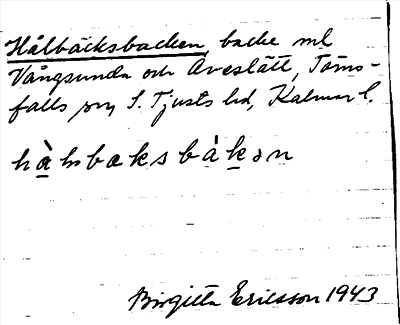 Hålbäcksbacken, backe ml
Vångsunda och Aveslätt, Törns-
falls sn, S. Tjusts hd, Kalmar l.
Birgitta Ericsson 1943